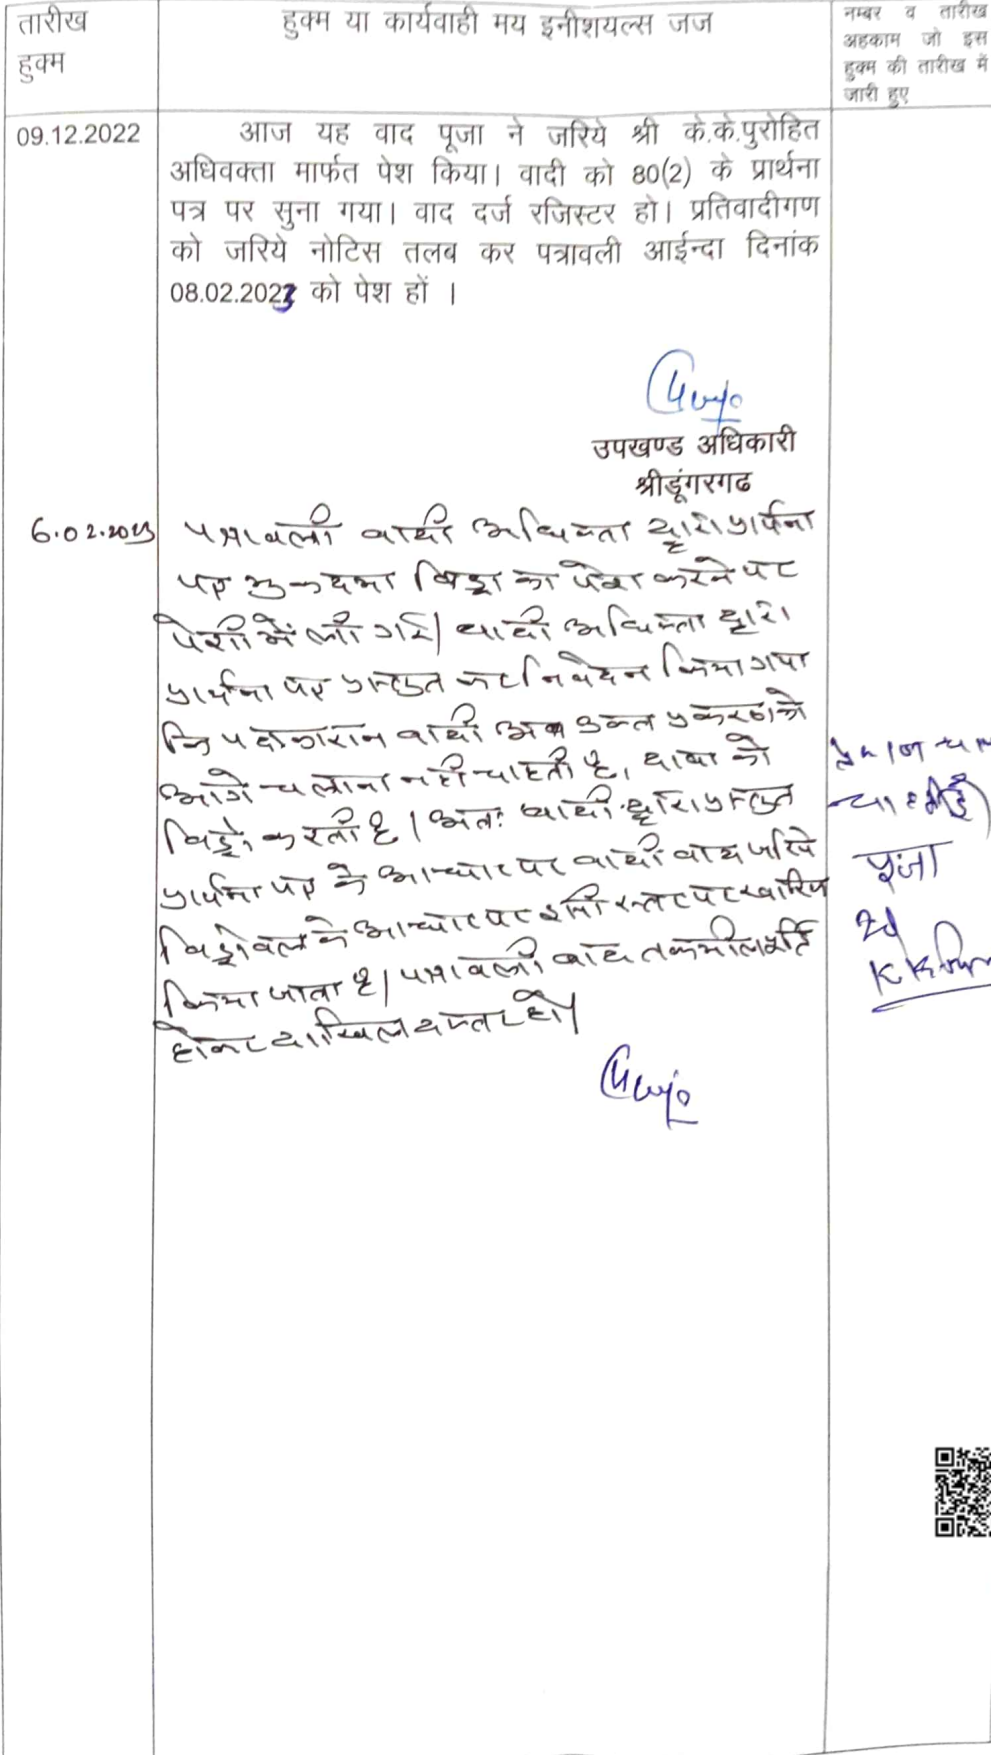 तारीख
हुक्म
हुक्म या कार्यवाही मय इनीशयल्स जज
नम्बर व तारीख
अहकाम जो इस
हुक्म की तारीख में
जारी हुए
09.12.2022
आज यह वाद पूजा ने जरिये श्री के.के.पुरोहित
अधिवक्ता मार्फत पेश किया। वादी को 80(2) के प्रार्थना
पत्र पर सुना गया। वाद दर्ज रजिस्टर हो। प्रतिवादीगण
को जरिये नोटिस तलब कर पत्रावली आईन्दा दिनांक
08.02.2023 को पेश हों ।
उपखण्ड अधिकारी
श्रीडूंगरगढ
6.02.2023
पत्रावली वादी अधिवक्ता द्वारा प्रार्थना
पत्र मुकदमा विड्रा का पेश करने पर
पेशी में ली गई। वादी अधिवक्ता द्वारा
प्रार्थना पत्र प्रस्तुत कर निवेदन किया गया
कि वादी अब उक्त प्रकरण को
आगे चलाना नहीं चाहती है, दावा को
विड्रो करती है। अतः वादी द्वारा प्रस्तुत
प्रार्थना पत्र के आधार पर वादी वाद जरिये
विड्रोवल के आधार पर इसी स्तर पर खारिज
किया जाता है। पत्रावली बाद तकमील
होकर दाखिल दफ्तर हो।
पूजा